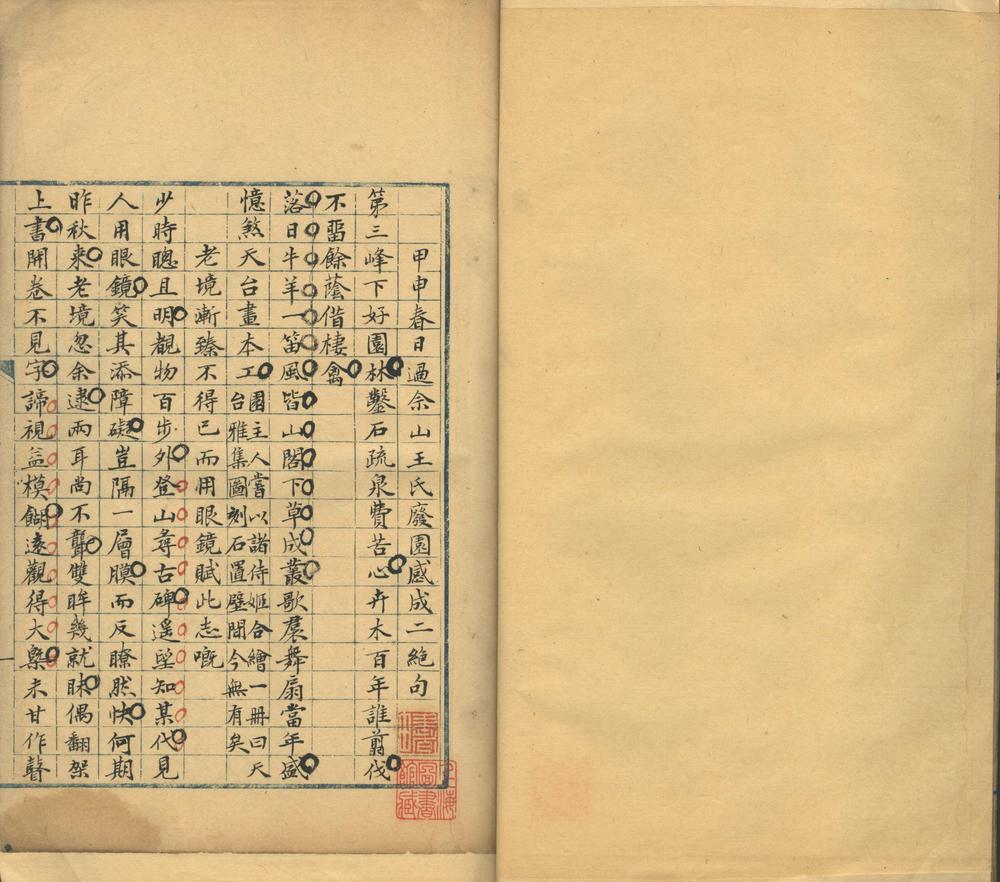 甲申春日過佘山王氏廢園感成二絕句
第三峰下好園林鑿石疏泉費苦心卉木百年誰翦伐
不畱餘蔭借棲禽
落日牛羊一笛風皆山閣下草成叢歌裠舞扇當年盛
憶煞天台畫本工園主人嘗以諸侍姬合繪一冊曰天
台雅集圖刻石置壁間今無有矣
老境漸臻不得已而用眼鏡賦此志嘅
少時聰且明覩物百步外登山尋古碑遥望知某代見
人用眼鏡笑其添障礙豈隔一層膜而反瞭然快何期
昨秋来老境忽余逮兩耳尚不聾雙眸幾就昧偶翻架
上書開卷不見字諦視益模餬遠觀得大槩未甘作瞽
上海
圖書
館藏